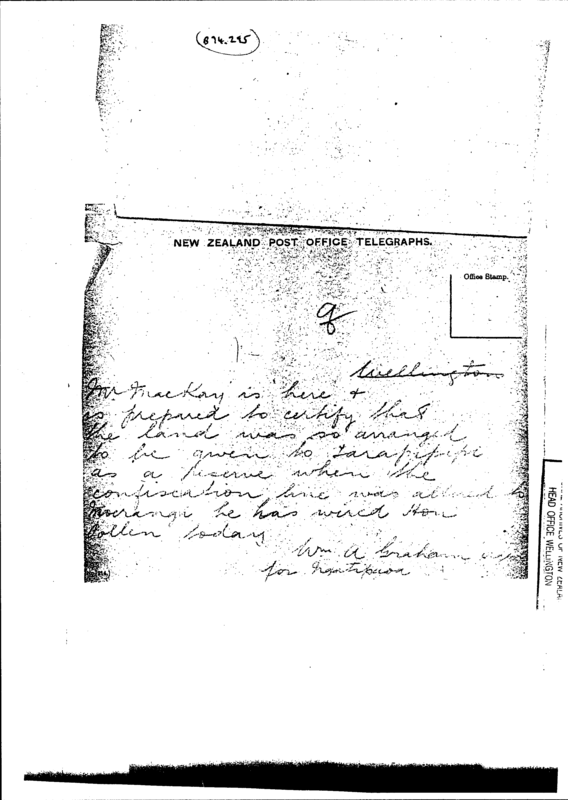 874.295
NEW ZEALAND POST OFFICE TELEGRAPHS.
Office Stamp.
9
Wellington
Mr MacKay is here &
is prepared to certify that
the land was so arranged
to be given to Tarapipipi
as a reserve when the
confiscation line was altered to
Moerangi he has wired Hon
Pollen today
Wm A Graham
for Ngatipaoa
HEAD OFFICE WELLINGTON